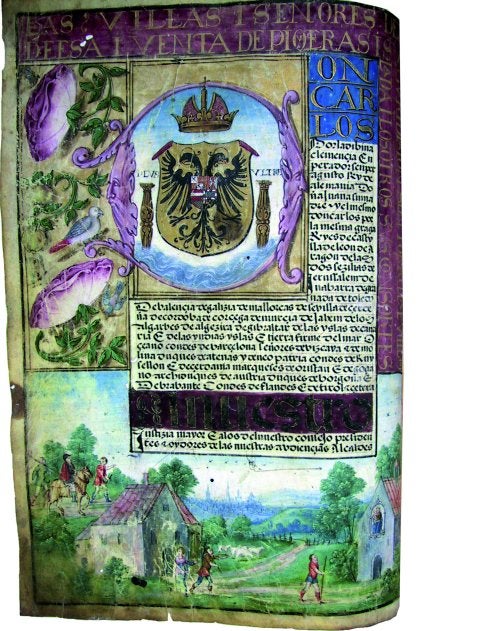 LAS VILLAS I SEÑORES
DEESA I VENTA DE PIQERAS I
ON
CAR
LOS
Por la divina
clemencia En
perador senper
agusto Rey de
alemania Do
ña Juana su ma
dre y el mesmo
don carlos por
la mesma graçia
Reyes de casty
lla de leon de A
ragon de las
Dos sezilias de
Jerusalem de
nabarra de gra
nada de toledo
PLVS VLTRA
De balençia de galizia de mallorcas de sevilla de cerde
ña de cordoba de corçega de murçia de Jahen de los
Algarbes de algezira de gibraltar de las yslas de cana
ria E de las yndias yslas E tierra firme del mar O
çeano condes de barçelona señores de bizcaya E de mo
lina duques de atenas y de neo patria condes de Ru
ysellon E de cerdania marqueses de oristan E de goçia
no archiduques de austria duques de borgoña E
De brabante Condes de flandes E de tirol ecetera
Al nuestro
Justizia mayor E a los del nuestro consejo presiden
tes E oydores de las nuestras avdiençias Alcaldes